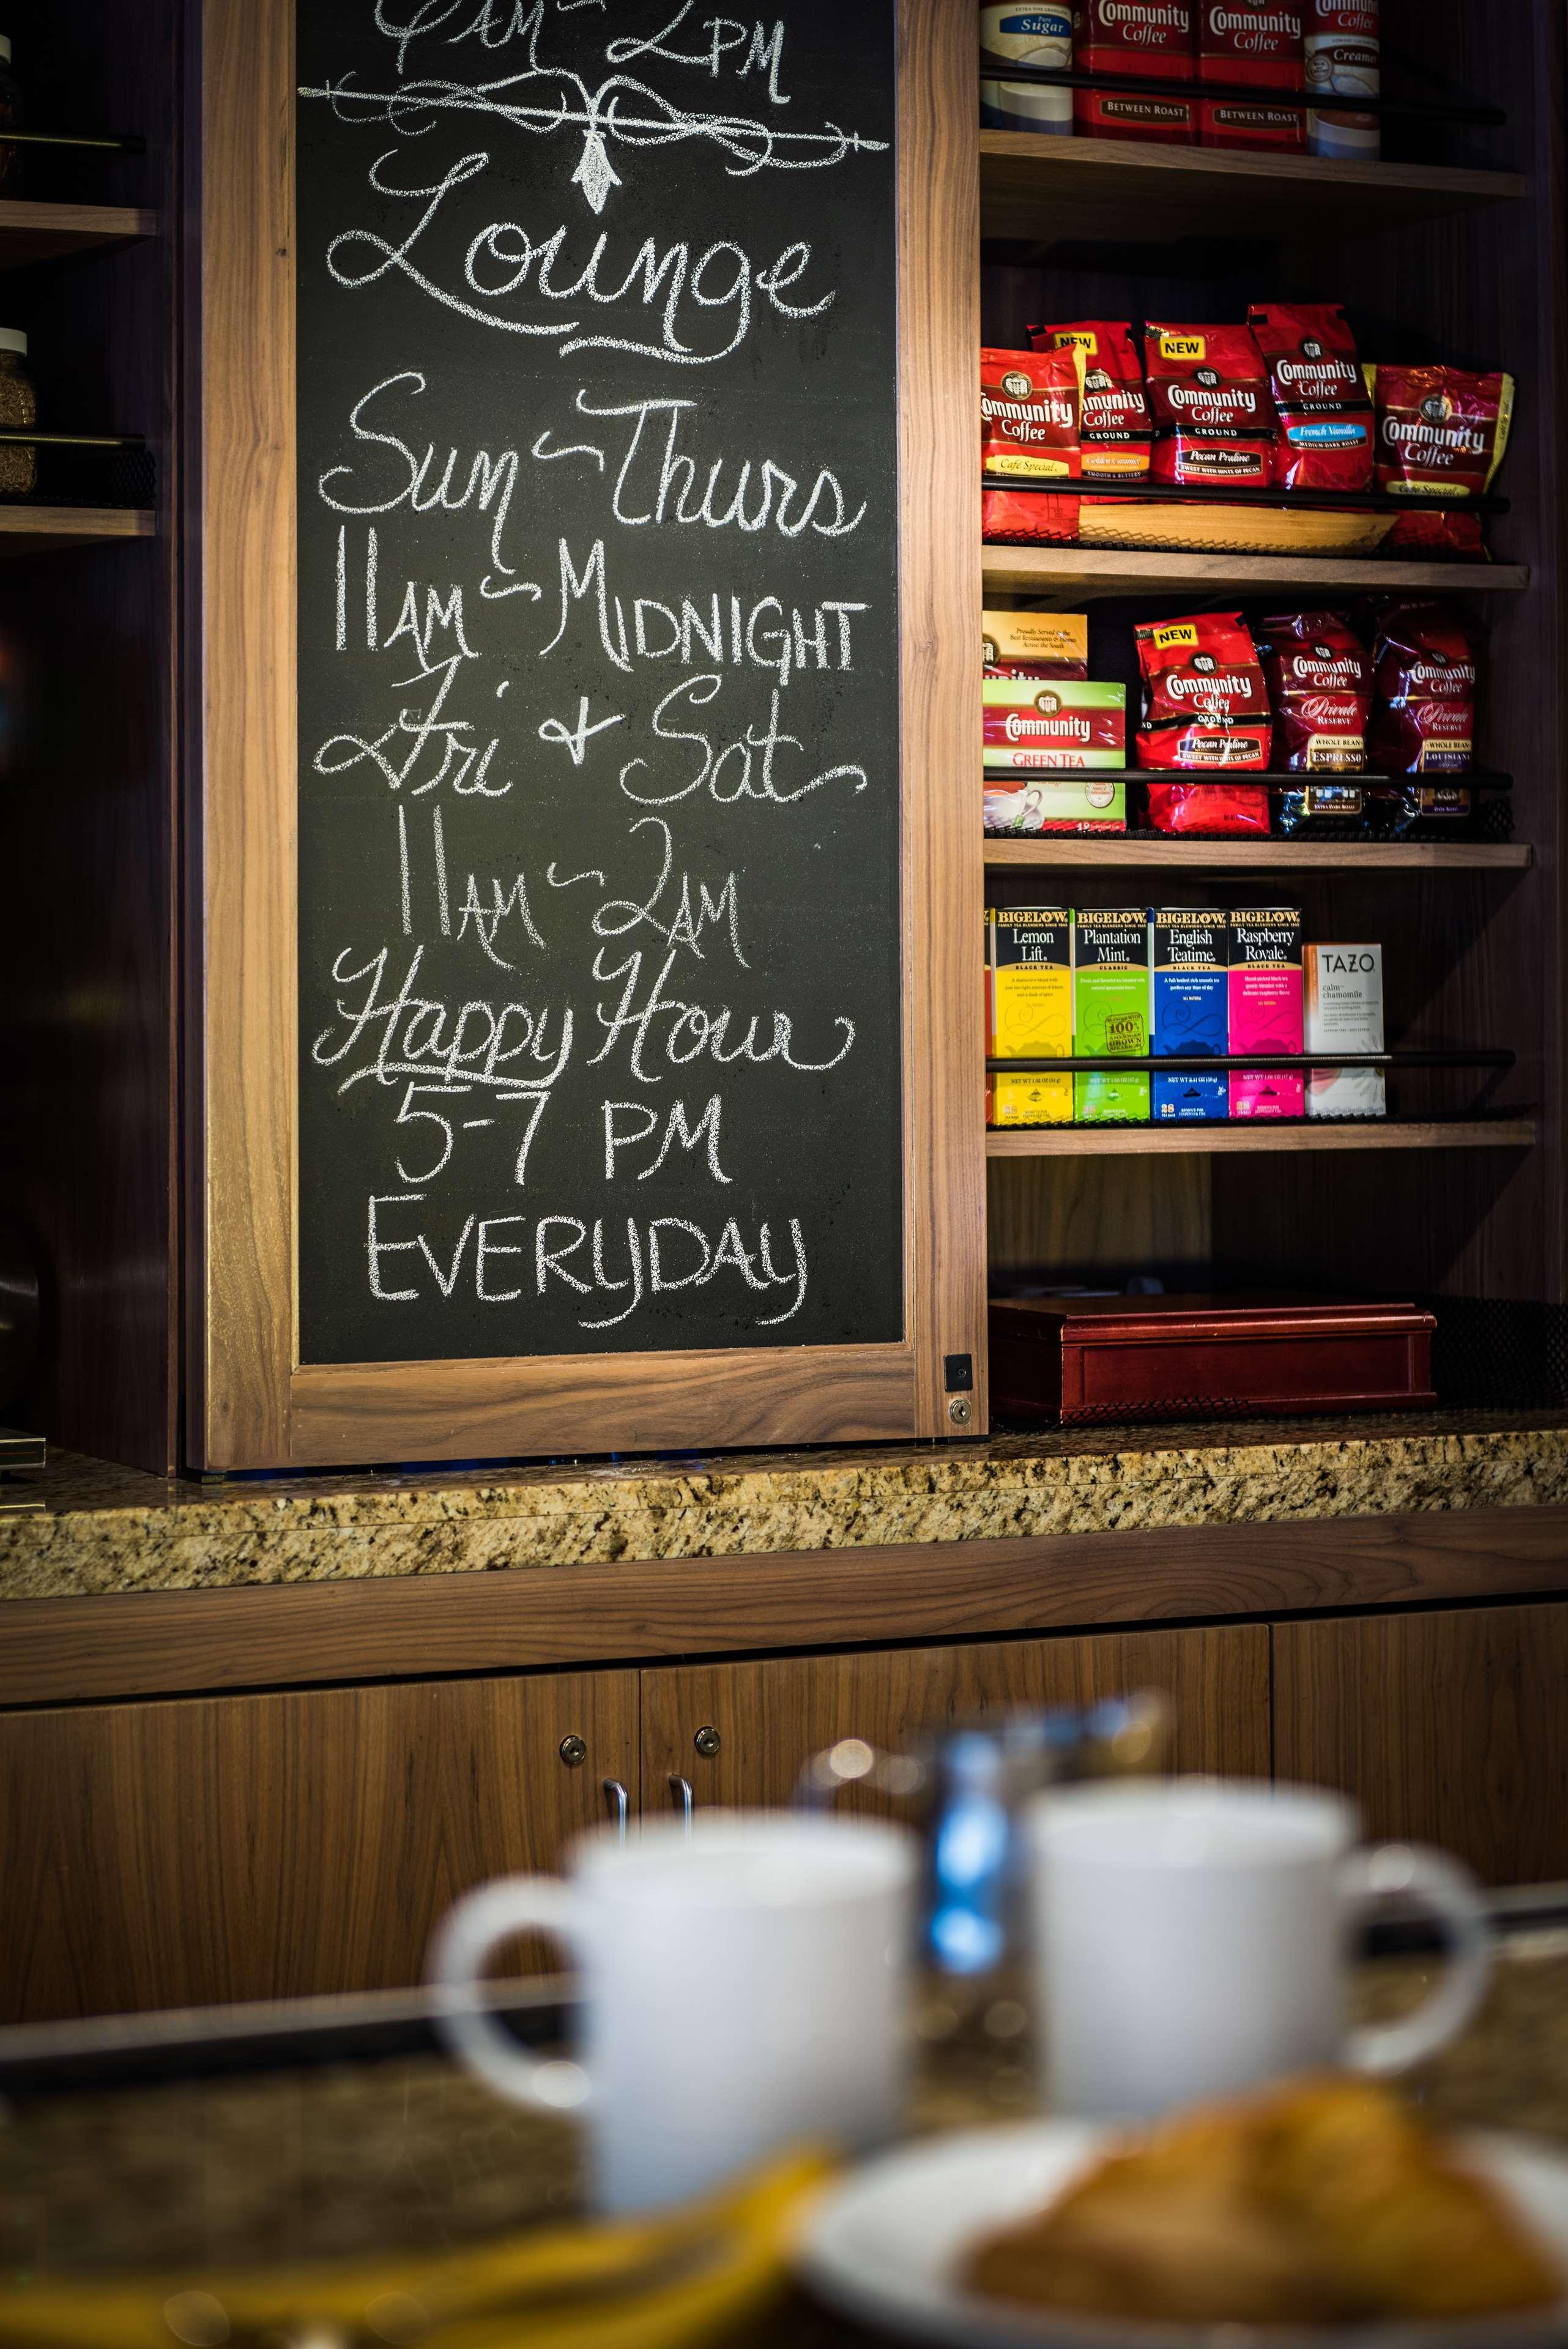 2PM
Lounge
Sun ~ Thurs
11AM ~ MIDNIGHT
Fri & Sat
11AM ~ 2AM
Happy Hour
5-7 PM
EVERYDAY
Pure
Sugar
Community
Coffee
BETWEEN ROAST
Community
Coffee
BETWEEN ROAST
Coffee
Creamer
Community
Coffee
Café Special
NEW
Community
Coffee
GROUND
NEW
Community
Coffee
GROUND
Pecan Praline
SWEET WITH HINTS OF PECAN
Community
Coffee
GROUND
French Vanilla
MEDIUM-DARK ROAST
Community
Coffee
Café Special
Proudly Served in the
Best Restaurants & Homes
Across the South
Community
GREEN TEA
NEW
Community
Coffee
GROUND
Pecan Praline
SWEET WITH HINTS OF PECAN
Community
Coffee
Private
RESERVE
WHOLE BEAN
ESPRESSO
EXTRA DARK ROAST
Community
Coffee
Private
RESERVE
WHOLE BEAN
LOUISIANA
DARK ROAST
BIGELOW
Lemon
Lift
BLACK TEA
BIGELOW
Plantation
Mint
CLASSIC
100%
BIGELOW
English
Teatime
BLACK TEA
BIGELOW
Raspberry
Royale
BLACK TEA
TAZO
calm
chamomile